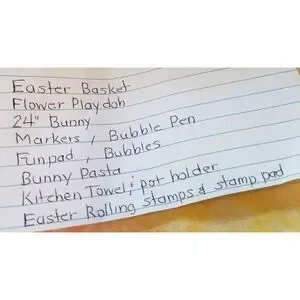 Easter Basket
Flower Playdoh
24" Bunny
Markers, Bubble Pen
Funpad, Bubbles
Bunny Pasta
Kitchen Towel & pot holder
Easter Rolling stamps & stamp pad